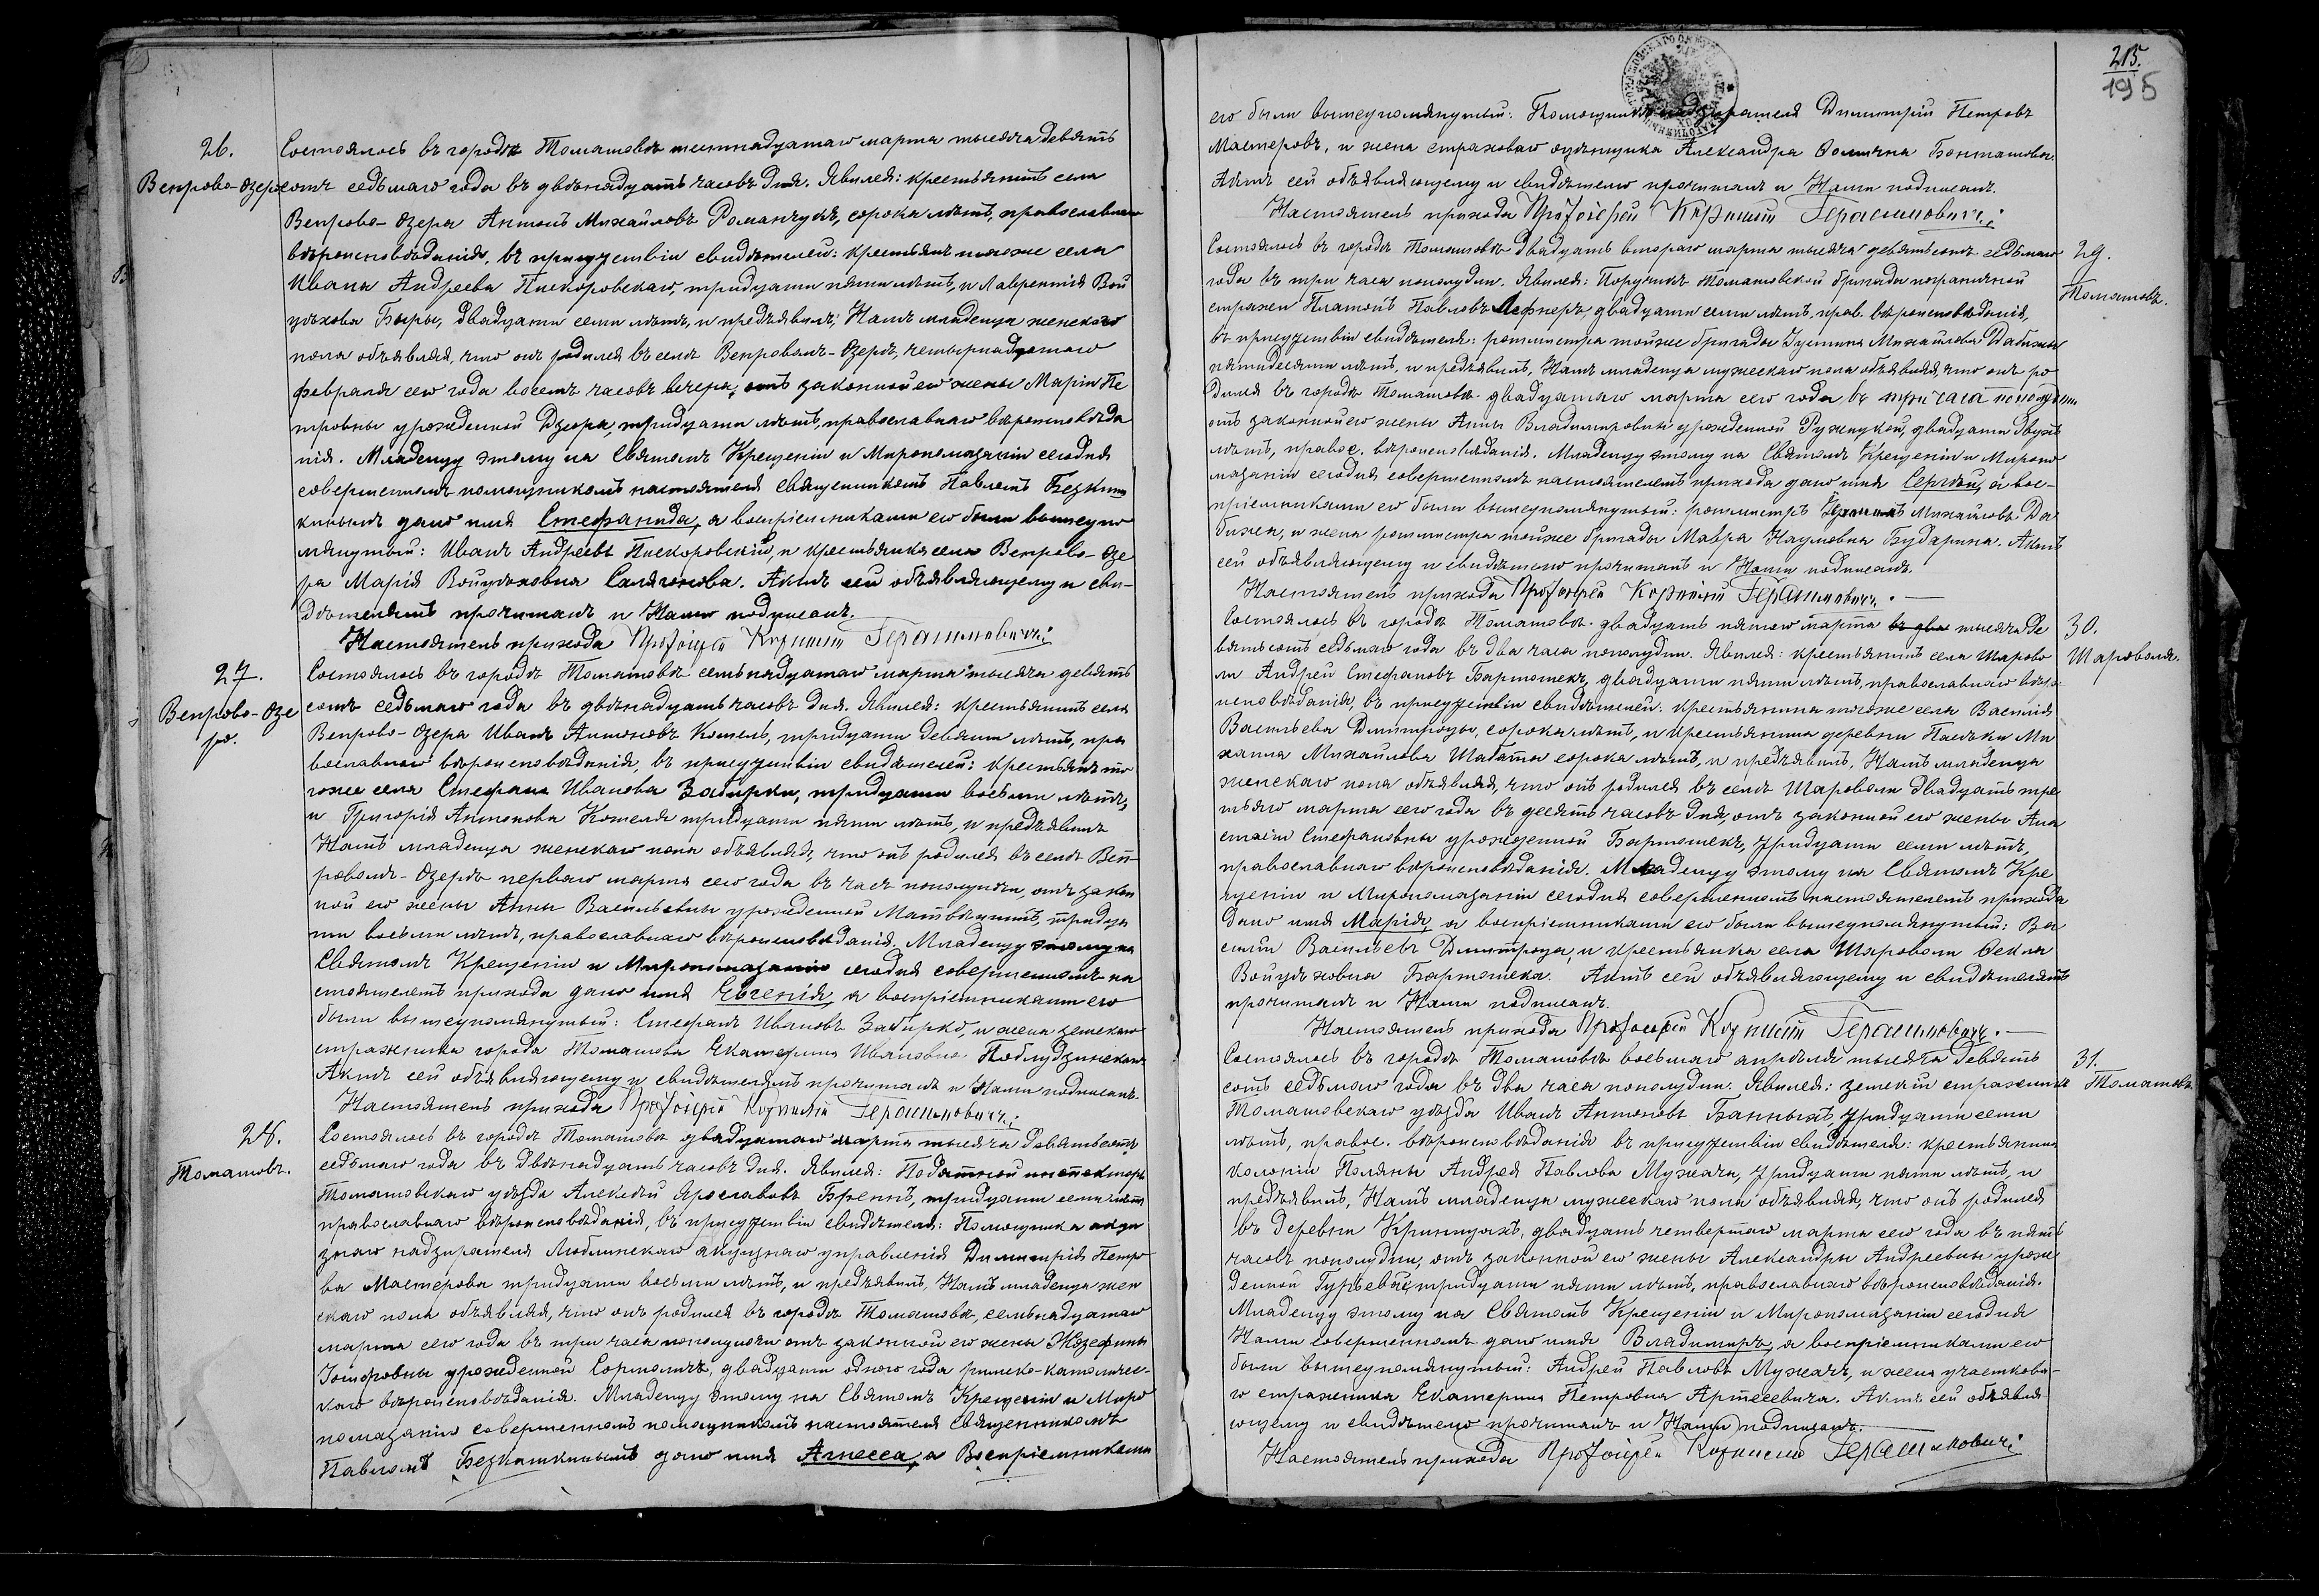 26.
Венрово-Озеро
Состоялось въ городѣ Томашовѣ шестнадцатаго марта тысяча девять
сотъ седьмаго года въ двѣнадцать часовъ дня. Явился: крестьянинъ села
Венрово-Озера Антонъ Михайловъ Романчукъ, сорока лѣтъ, православнаго
вѣроисповѣданія, въ присутствіи свидѣтелей: крестьянъ тогоже села
Ивана Андреева Пискоровскаго, тридцати пяти лѣтъ, и Лаврентія Вой
цѣхова Быры, двадцати семи лѣтъ, и предъявилъ, Намъ младенца женскаго
пола объявляя, что онъ родился въ селѣ Венровомъ-Озерѣ, четырнадцатаго
февраля сего года восемь часовъ вечера, отъ законной его жены Маріи Пе
тровны урожденной Дзюра, тридцати лѣтъ, православнаго вѣроисповѣда
нія. Младенцу этому на Святомъ Крещеніи и Миропомазаніи сегодня
совершенномъ помощникомъ настоятеля Священникомъ Павломъ Безкиш
кинымъ дано имя Стефанида, а воспріемниками его были вышеупо
мянутый: Иванъ Андреевъ Пискоровскій, и крестьянка села Венрово-Озе
ра Марія Войцѣховна Салягонова. Актъ сей объявляющему и сви-
дѣтелямъ прочитанъ и Нами подписанъ.
Настоятель прихода Протоіерей Корнилій Герасимовичъ
27.
Венрово-Озе
ро.
Состоялось въ городѣ Томашовѣ семнадцатаго марта тысяча девять
сотъ седьмаго года въ двѣнадцать часовъ дня. Явился: крестьянинъ села
Венрово-Озера Иванъ Антоновъ Кошель, тридцати девяти лѣтъ, пра
вославнаго вѣроисповѣданія, въ присутствіи свидѣтелей: крестьянъ то
гоже села Стефана Иванова Забирки, тридцати восьми лѣтъ,
и Григорія Антонова Кошеля тридцати пяти лѣтъ, и предъявилъ
Намъ младенца женскаго пола объявляя, что онъ родился въ селѣ Вен-
ровомъ-Озерѣ перваго марта сего года въ часъ пополуночи, отъ закон
ной его жены Анны Васильевны урожденной Матвѣишинъ, тридца
ти восьми лѣтъ, православнаго вѣроисповѣданія. Младенцу этому на
Святомъ Крещеніи и Миропомазаніи сегодня совершенномъ на
стоятелемъ прихода дано имя Евгенія, а воспріемниками его
были вышеупомянутый: Стефанъ Ивановъ Забирко, и жена земскаго
стражника города Томашова Екатерина Ивановна Поблудзинская.
Актъ сей объявляющему и свидѣтелямъ прочитанъ и Нами подписанъ.
Настоятель прихода Протоіерей Корнилій Герасимовичъ
28.
Томашовъ.
Состоялось въ городѣ Томашовѣ двадцатаго марта тысяча девятьсотъ
седьмаго года въ двѣнадцать часовъ дня. Явился: Податной инспекторъ
Томашовскаго уѣзда Алексѣй Ярославовъ Бреннъ, тридцати семи лѣтъ
православнаго вѣроисповѣданія, въ присутствіи свидѣтеля: Помощника акци
знаго надзирателя Люблинскаго акцизнаго управленія Димитрія Петро
ва Мастерова тридцати восьми лѣтъ, и предъявилъ, Намъ младенца жен
скаго пола объявляя, что онъ родился въ городѣ Томашовѣ, семнадцатаго
марта сего года въ три часа пополуночи отъ законной его жены Жозефины
Іосифовны урожденной Сормолтъ, двадцати одного года римско-католичес-
каго вѣроисповѣданія. Младенцу этому на Святомъ Крещеніи и Миро
помазаніи совершенномъ помощникомъ настоятеля Священникомъ
Павломъ Безкишкинымъ дано имя Агнесса, а Воспріемниками
215.
195
его были вышеупомянутый: Помощникъ надзирателя Димитрій Петровъ
Мастеровъ, и жена страховаго оцѣнщика Александра Ѳоминна Бонташова.
Актъ сей объявляющему и свидѣтелю прочитанъ и Нами подписанъ.
Настоятель прихода Протоіерей Корнилій Герасимовичъ
29.
Томашовъ.
Состоялось въ городѣ Томашовѣ двадцать втораго марта тысяча девятьсотъ седьмаго
года въ три часа пополудни. Явился: Поручикъ Томашовской бригады пограничной
стражи Платонъ Павловъ Лефнеръ двадцати семи лѣтъ, прав. вѣроисповѣданія,
въ присутствіи свидѣтеля: ротмистра тойже бригады Іустина Михайлова Дабижи
пятидесяти лѣтъ, и предъявилъ, Намъ младенца мужескаго пола объявляя, что онъ ро
дился въ городѣ Томашовѣ двадцатаго марта сего года въ три часа пополудни
отъ законной его жены Анны Владиміровны урожденной Ружицкой, двадцати двухъ
лѣтъ, правос. вѣроисповѣданія. Младенцу этому на Святомъ Крещеніи и Миропо
мазаніи сегодня совершенномъ настоятелемъ прихода дано имя Сергѣй, а вос-
пріемниками его были вышеупомянутый: ротмистръ Іустинъ Михайловъ Да
бижа, и жена ротмистра тойже бригады Мавра Наумовна Бударина. Актъ
сей объявляющему и свидѣтелю прочитанъ и Нами подписанъ.
Настоятель прихода Протоіерей Корнилій Герасимовичъ.
30.
Шароволя.
Состоялось въ городѣ Томашовѣ двадцать пятого марта въ два тысяча де
вятьсотъ седьмаго года въ два часа пополудни. Явился: крестьянинъ села Шарово
ли Андрей Стефановъ Бартошекъ, двадцати пяти лѣтъ, православнаго вѣро
исповѣданія, въ присутствіи свидѣтелей: крестьянина тогоже села Василія
Васильева Димитроцы, сорока лѣтъ, и крестьянина деревни Пасѣки Ми
хаила Михайлова Шабата сорока лѣтъ, и предъявилъ, Намъ младенца
женскаго пола объявляя, что онъ родился въ селѣ Шароволи двадцать тре
тьяго марта сего года въ десять часовъ дня, отъ законной его жены Ана
стасіи Стефановны урожденной Бартошекъ, тридцати семи лѣтъ,
православнаго вѣроисповѣданія. Младенцу этому на Святомъ Кре
щеніи и Миропомазаніи сегодня совершенномъ настоятелемъ прихода
дано имя Марія, а воспріемниками его были вышеупомянутый: Ва
силій Васильевъ Димитроца, и крестьянка села Шароволи Ѳекла
Войцѣховна Бартошека. Актъ сей объявляющему и свидѣтелямъ
прочитанъ и Нами подписанъ.
Настоятель прихода Протоіерей Корнилій Герасимовичъ.
31.
Томашовъ.
Состоялось въ городѣ Томашовѣ восьмаго апрѣля тысяча девять
сотъ седьмаго года въ два часа пополудни. Явился: земскій стражникъ
Томашовскаго уѣзда Иванъ Антоновъ Банныхъ, тридцати семи
лѣтъ, правос. вѣроисповѣданія въ присутствіи свидѣтеля: крестьянина
колоніи Поляны Андрея Павлова Мужача, тридцати пяти лѣтъ, и
предъявилъ, Намъ младенца мужескаго пола объявляя, что онъ родился
въ деревни Криницахъ, двадцать четвертаго марта сего года въ пять
часовъ пополудни, отъ законной его жены Александры Андреевны урож
денной Гурьевой, тридцати пяти лѣтъ, православнаго вѣроисповѣданія.
Младенцу этому на Святомъ Крещеніи и Миропомазаніи сегодня
Нами совершенномъ дано имя Владимиръ, а воспріемниками его
были вышеупомянутый: Андрей Павловъ Мужачъ, и жена участкова-
го стражника Екатерина Петровна Артесевича. Актъ сей объявля
ющему и свидѣтелю прочитанъ и Нами подписанъ.
Настоятель прихода Протоіерей Корнилій Герасимовичъ